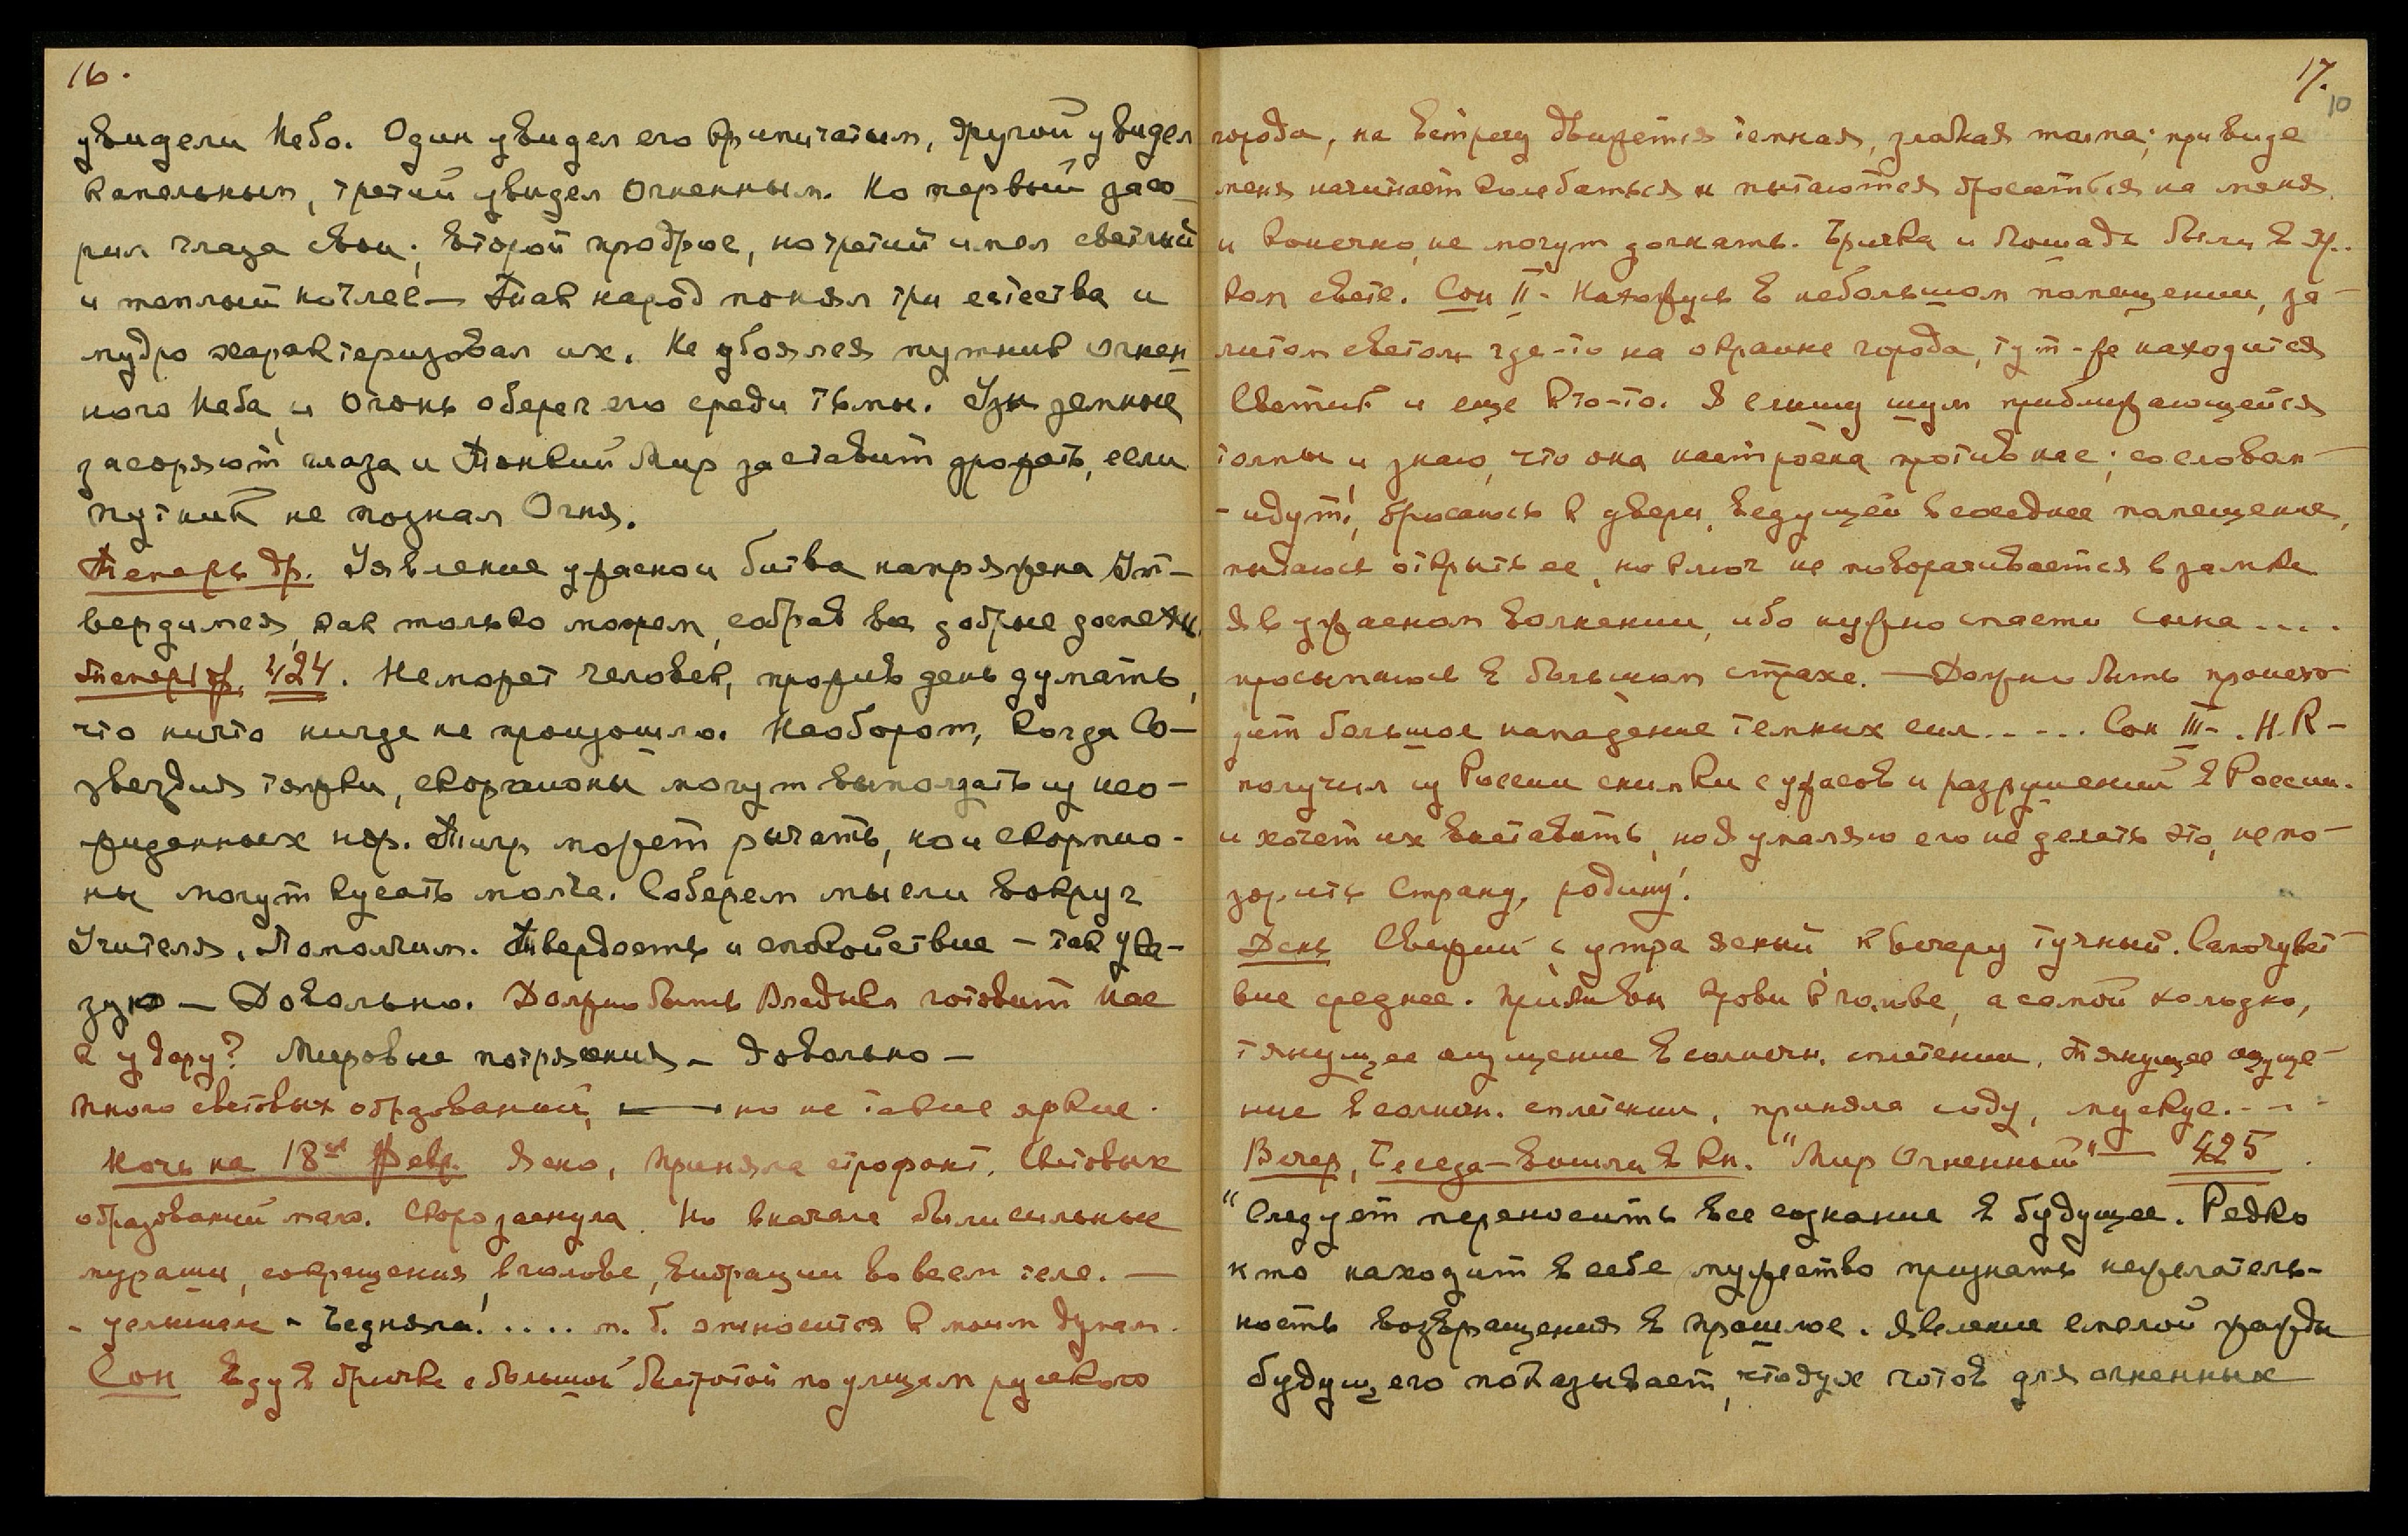 16.
увидели Небо. Один увидел его крипитатым, другой увидел
капельным, третий увидел Огненным. Но первый засо-
рил глаза свои; второй продрог, но третий имел светлый
и теплый ночлег — Так народ понял три естества и
мудро характеризовал их. Не убоялся путник огнен-
ного Неба, и Огонь оберег его среди тьмы. Узы земные
засоряют глаза и Тонкий Мир заставит дрожать, если
путник не познал Огня.
Теперь др. Уявление ужасной битва напряжена Ут-
вердимся, как только можем, собрав все добрые доспехи,
Теперь др. 424. Не может человек, прожив день думать,
что ничто нигде не произошло. Наоборот, когда Со-
звездия тяжки, скорпионы могут выползать из нео-
жиданных нор. Тигр может рычать, но и скорпио-
ны могут кусать молча. Соберем мысли вокруг
Учителя. Помолчим. Твердость и спокойствие — так ука-
зую — Довольно. Должно быть Владыка готовит нас
к удару? Мировые потрясения — Довольно —
Много световых образований, но не такие яркие.
Ночь на 18ое Февр. Ясно, Приняла строфант. Световых
образований мало. Скоро заснула. Но вначале были сильные
мураши, сокращения в голове, вибрации во всем теле. —
- услышала - Бедняга! .... м. б. относится к моим думам.
Сон Еду в бричке с большой быстротой по улицам русского
17.
10
города, на встречу движется темная, злобная толпа; при виде
меня начинает колебаться и пытаются броситься на меня.
и конечно, не могут догнать. Бричка и Лошадь были в яр..
ком свете. Сон II- Нахожусь в небольшом помещении, за-
литом светом где-то на окраине города, тут-же находится
Светик и еще кто-то. Я слышу шум приближающейся
толпы и знаю, что она настроена против нас; со словам-
- идут!, бросаюсь к двери, ведущей в соседнее помещение,
пытаюсь открыть ее, но ключ не поворачивается в замке
я в ужасном волнении, ибо нужно спасти сына ....
просыпаюсь в большом страхе. — Должно быть происхо-
дит большое нападение темных сил..... Сон III-. Н.К-
получил из России снимки с ужасов и разрушений в России.
и хочет их выставить, но я умоляю его не делать это, не по-
зорить Страну, родину!
День Свежий с утра ясный к вечеру тучный. Самочувст-
вие среднее. Приливы крови к голове, а самой холодно,
тянущее ощущение в солнечн. сплетении. Тянущее ощуще-
ние в солнечн. сплетении, приняла соду, мускус....
Вечер, Беседа — вошли в Кн. "Мир Огненный" — 425.
"Следует переносить все сознание в будущее. Редко
кто находит в себе мужество признать нежелатель-
ность возвращения в прошлое. Явление смелой жажды
будущего показывает, что дух готов для огненных